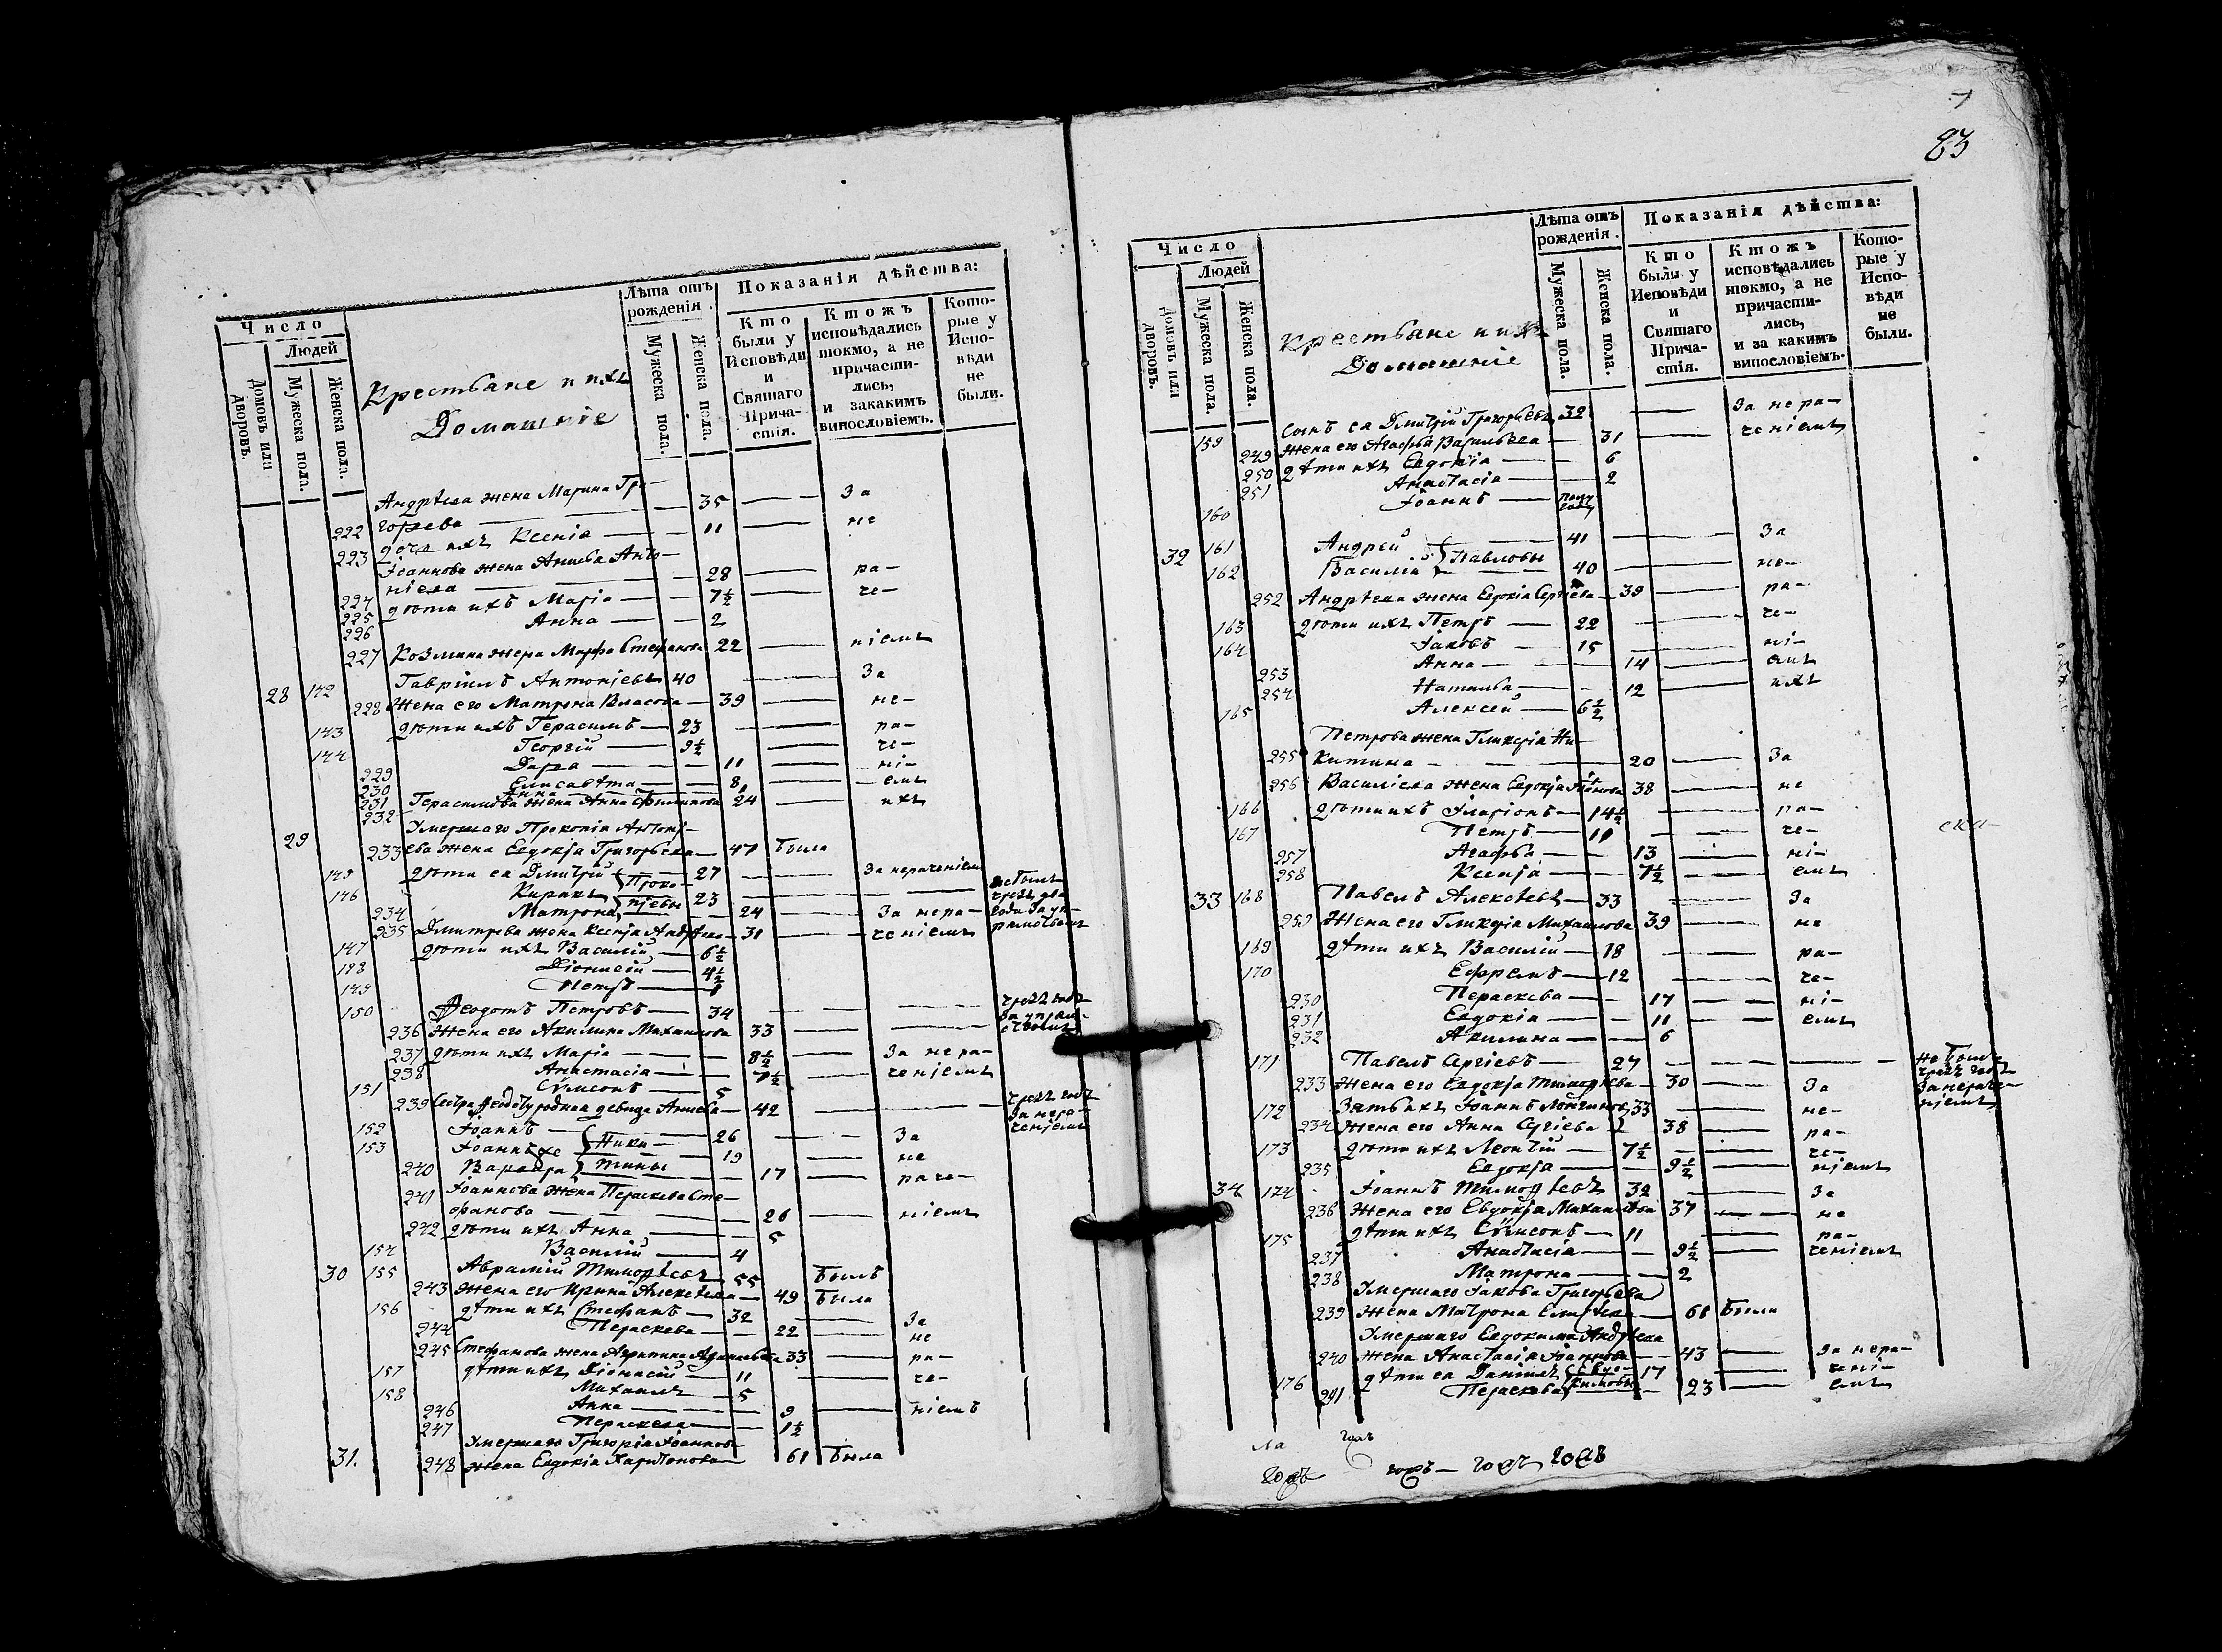 Число
Людей
Домовъ или дворовъ.
Мужеска пола.
Женска пола.
Крестьяне и ихъ
Домашніе
Лѣта отъ рожденія.
Мужеска пола.
Женска пола.
Показанія дѣйства:
Кто были у Исповѣди и Святаго Причастія.
Ктожъ исповѣдались токмо, а не причастились, и закакимъ винословіемъ.
Которые у Исповѣди не были.
Андрѣева жена Марина Гри-
222 горьева — 35 — За
223 дочь ихъ Ксенія — 11 — не
Іоаннова жена Анисья Анто-
224 ніева — 28 — ра-
225 дѣти ихъ Марія — 7½ — че-
226 Анна — 2
227 Козмина жена Марфа Стефанова 22 — ніемъ
28 142 Гавріилъ Антоніевъ 40 — За
228 Жена его Матрона Власова — 39 — не-
143 дѣти ихъ Герасимъ — 23 — ра-
144 Георгій — 9½ — че-
229 Дарья — 11 — ні-
230 Елисавѣта — 8 — емъ
231 Анна — 1
232 Герасимова жена Анна Филипова 24 — ихъ
29 Умершаго Прокопія Антоні-
233 ева жена Евдокія Григорьева — 47 была
145 дѣти ея Димитрій Проко- 27 — За нераченіемъ
146 Кирикъ піевы 23 — не былъ
234 Матрона — 24 — За нера-
235 Димитріева жена Ксенія Андрѣева — 31 — ченіемъ
147 дѣти ихъ Василій — 6½
148 Діонисій — 4½
149 Петръ — 1
150 Ѳеодотъ Петровъ — 34
236 Жена его Акилина Михаилова 33
237 дѣти ихъ Марія — 8½ — За нера-
238 Анастасія — 7½ — ченіемъ
151 Сѵмеонъ — 5
239 Сестра Ѳеодоту родная девица Анисья — 42 — За нера-
ченіемъ
152 Іоаннъ Ники- 26 — За
153 Іоаннъ же тины 19 — не
240 Варвара — 17 — раче-
241 Іоаннова жена Параскева Сте-
фанова — 26 — ніемъ
242 дѣти ихъ Анна — 5
154 Василій — 4
30 155 Аврамій Тимоѳѣевъ — 55 былъ
243 Жена его Ирина Алексѣева — 49 была
156 дѣти ихъ Стефанъ — 32 — За
244 Параскева — 22 — не
245 Стефанова жена Агрипина 33 — ра-
157 дѣти ихъ Діонисій — 11 — че-
158 Михаилъ — 5
246 Анна — 9 — ніемъ
247 Параскева — 1½
Умершаго Григорія Іоаннова
31. 248 жена Евдокія Харитонова — 61 была
23
Число
Людей
Домовъ или дворовъ.
Мужеска пола.
Женска пола.
Крестьяне и ихъ
Домашніе
Лѣта отъ рожденія.
Мужеска пола.
Женска пола.
Показанія дѣйства:
Кто были у Исповѣди и Святаго Причастія.
Ктожъ исповѣдались токмо, а не причастились, и за какимъ винословіемъ.
Которые у Исповѣди не были.
159 Сынъ ея Димитрій Григорьевъ 32 — За нера-
249 жена его Агафья Васильева — 31 — ченіемъ
250 дѣти ихъ Евдокія — 6
251 Анастасія — 2
160 Іоаннъ — полу года
32 161 Андрей Павловы 41 — За
162 Василій 40 — не-
252 Андрѣева жена Евдокія Сергіева — 39 — ра-
163 дѣти ихъ Петръ — 22 — че-
164 Іаковъ — 15 — ні-
253 Анна — 14 — емъ
254 Наталья — 12 — ихъ
165 Алексей — 6½
Петрова жена Гликерія Ни-
255 китина — 20 — За
256 Василіева жена Евдокія 38 — не
166 дѣти ихъ Иларіонъ — 14½ — ра-
167 Петръ — 11 — че-
257 Агафья — 13 — ні-
258 Ксенія — 7½ — емъ
33 168 Павелъ Алексѣевъ — 33 — За
259 Жена его Гликерія Михаилова 39 — не
169 дѣти ихъ Василій — 18 — ра-
170 Ефремъ — 12 — че-
230 Параскева — 17 — ні-
231 Евдокія — 11 — емъ
232 Акилина — 6
171 Павелъ Сергіевъ — 27 — не былъ
233 жена его Евдокія Тимоѳѣева — 30 — За
172 Зять ихъ Іоаннъ Логгиновъ 33 — не-
234 жена его Анна Сергіева — 38 — ра-
173 дѣти ихъ Леонтій — 7½ — че-
235 Евдокія — 9½ — ніемъ
34 174 Іоаннъ Тимоѳѣевъ 32 — За
236 жена его Евдокія Михаилова 37 — не
175 дѣти ихъ Сѵмеонъ — 11 — ра-
237 Анастасія — 9½ — ченіемъ
238 Матрона — 2
Умершаго Іакова Григорьева
239 жена Матрона Елисѣева — 61 была
Умершаго Евдокима Андрѣева
240 жена Анастасія Іоаннова — 43 — За нера-
176 дѣти ея Даніилъ Евдо- 17 — чені-
241 Параскева кимовы — 23 — емъ
годъ годъ — годъ годъ